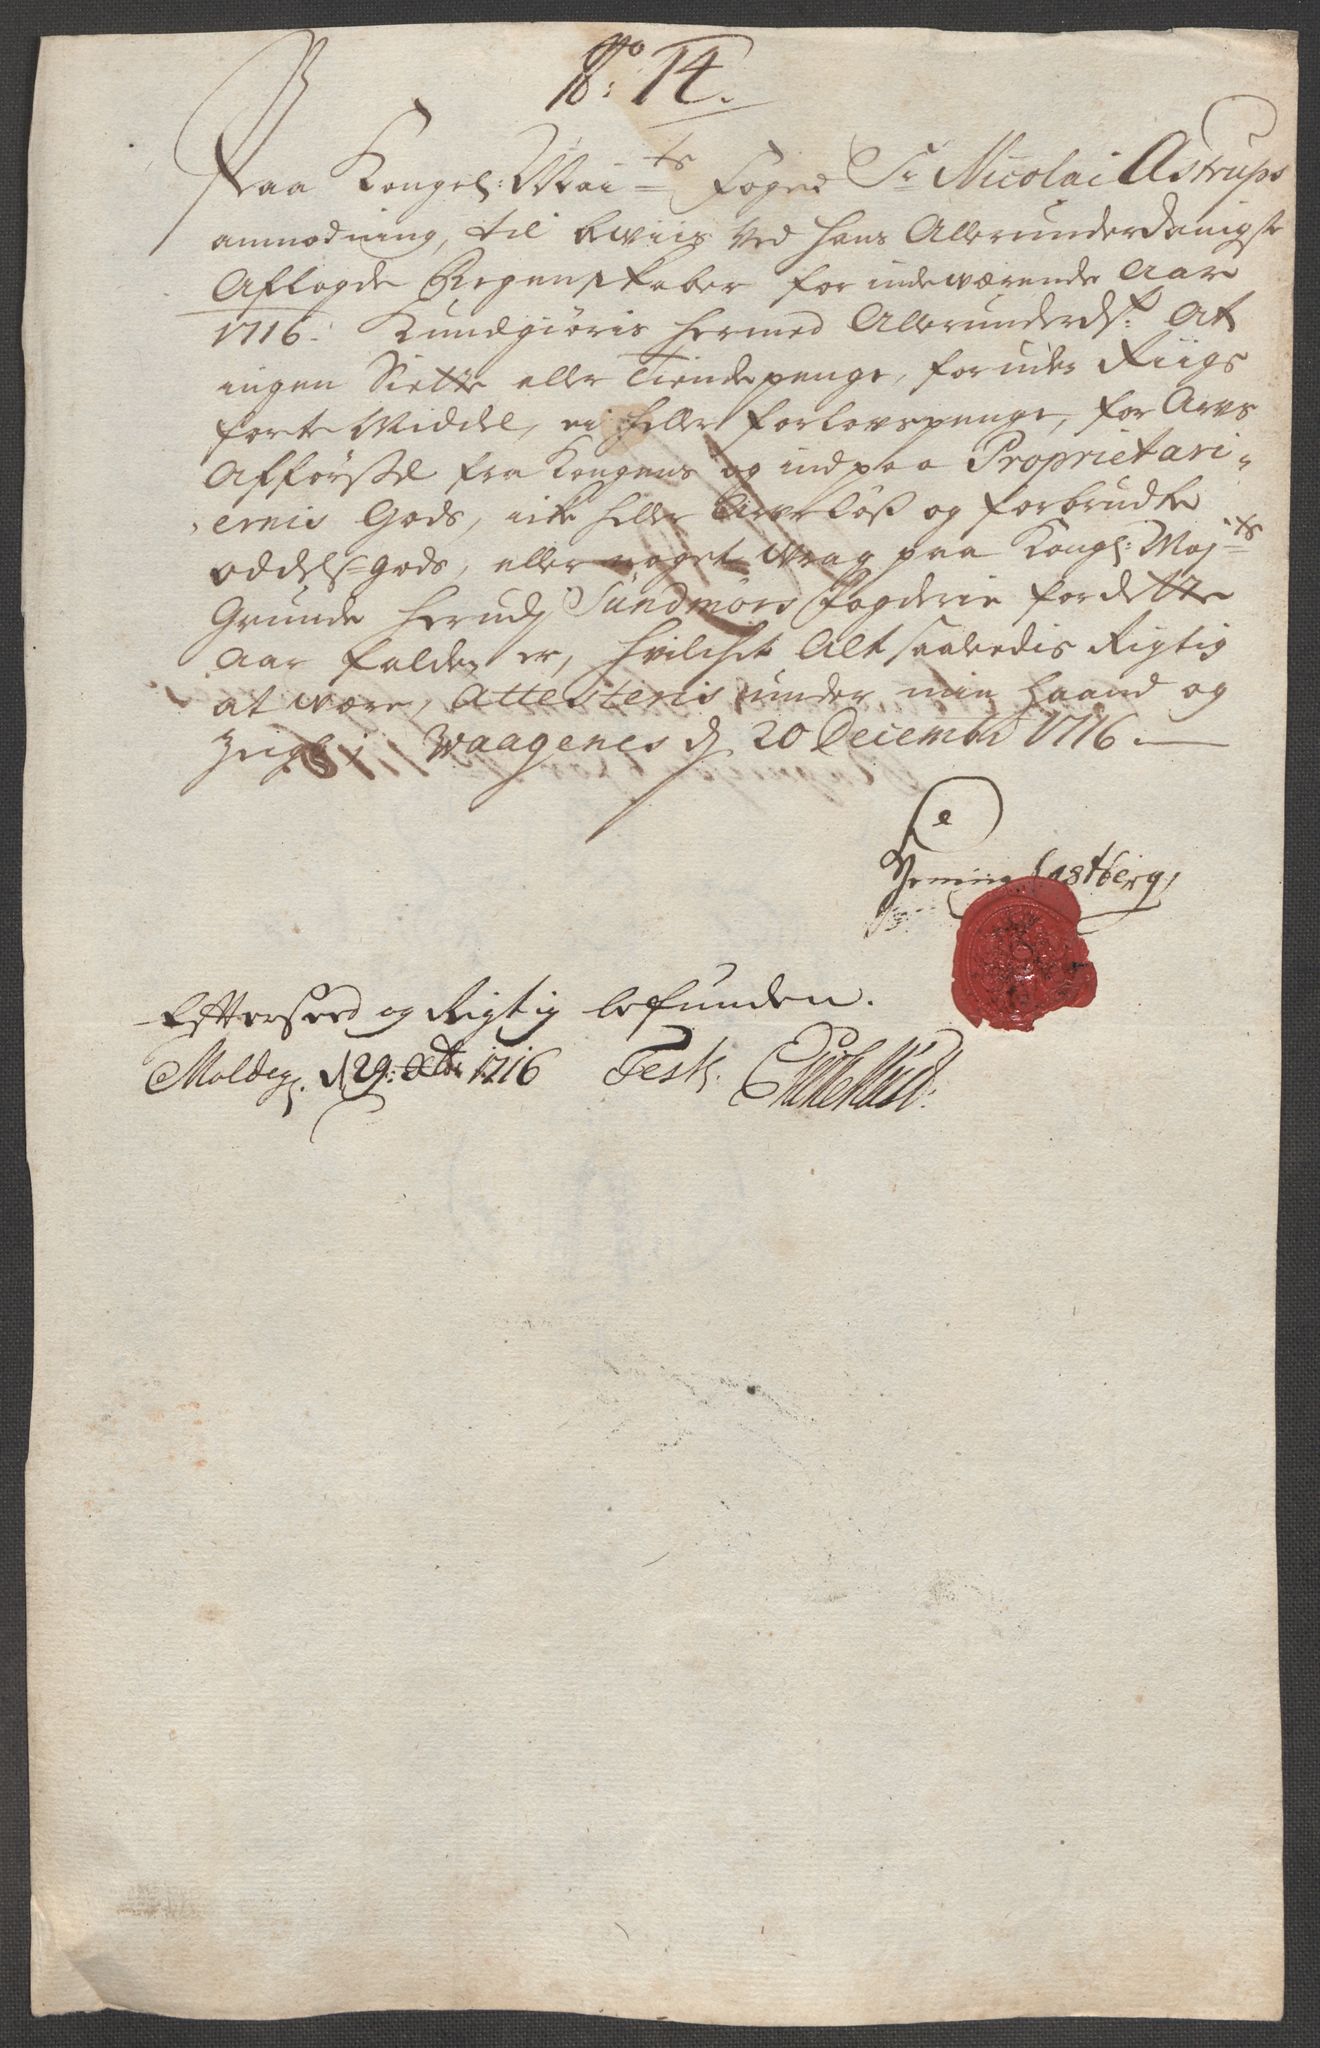 No: 14.
Paa Kongel: Mai=ts Foged Sr Nicolai Astrups
anmodning, til Beviis ved hans Allerunderdanigste
Aflagde Regenskaber for indeværende Aar
1716. Kundgiøris hermed Allerunderd:t At
ingen Siette eller Tiendepenge, for uden Riigs
førte Middel, ei heller forlovspenge, for Arvs
Afførsel fra Kongens og ind paa Proprietari-
ernis Gods, icke heller Arveløs og forbrudte
oddels=gods, eller noget Vrag paa Kongl: Maj=ts
Grunde herudj Sundmørs fogderie for dette
Aar falden er, hvilchet Alt saaledis Rigtig
at være, Attesteris under min haand og
Waagenes d 20 December 1716.
Castberg
Efterseed og Rigtig befunden.
Molde d. 29: Xbr 1716 Test.